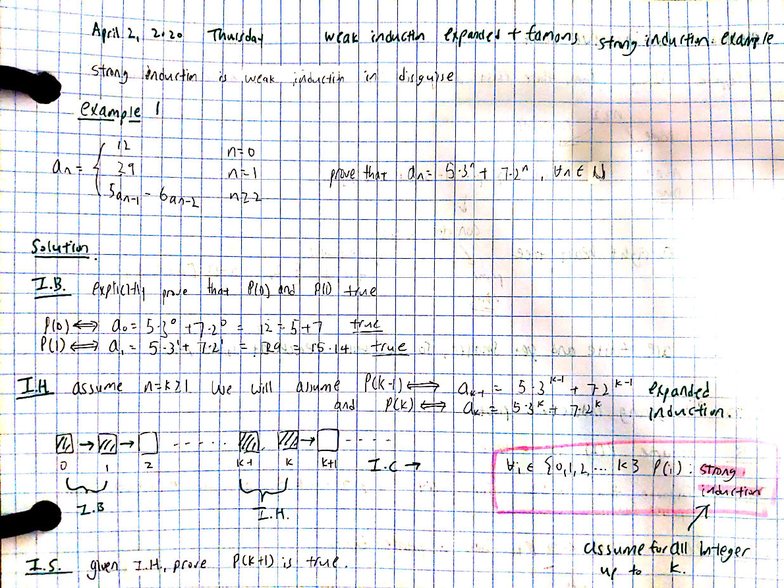 April 2, 2020 Thursday weak inductin expanded + famons strong induction. example
strong inductin is weak induction in disguise
example 1
an = { 12 n=0
29 n=1
5an-1 - 6an-2 n≥2
prove that an = 5·3ⁿ + 7·2ⁿ, ∀n ∈ ℕ
Solution.
I.B. explicitly prove that P(0) and P(1) true
P(0) ⟺ a0 = 5·3⁰ + 7·2⁰ = 12 = 5+7 true
P(1) ⟺ a1 = 5·3¹ + 7·2¹ = 29 = 15·14 true
I.H. assume n=k≥1 We will assume P(k-1) ⟺ ak-1 = 5·3ᵏ⁻¹ + 7·2ᵏ⁻¹ expanded
and P(k) ⟺ ak = 5·3ᵏ + 7·2ᵏ induction.
→ → ...... → .....
0 1 2 k-1 k k+1 I.C →
I.B I.H.
∀i ∈ {0,1,2,... k} P(i) : strong
induction
assume for all integer
up to k.
I.S. given I.H., prove P(k+1) is true.